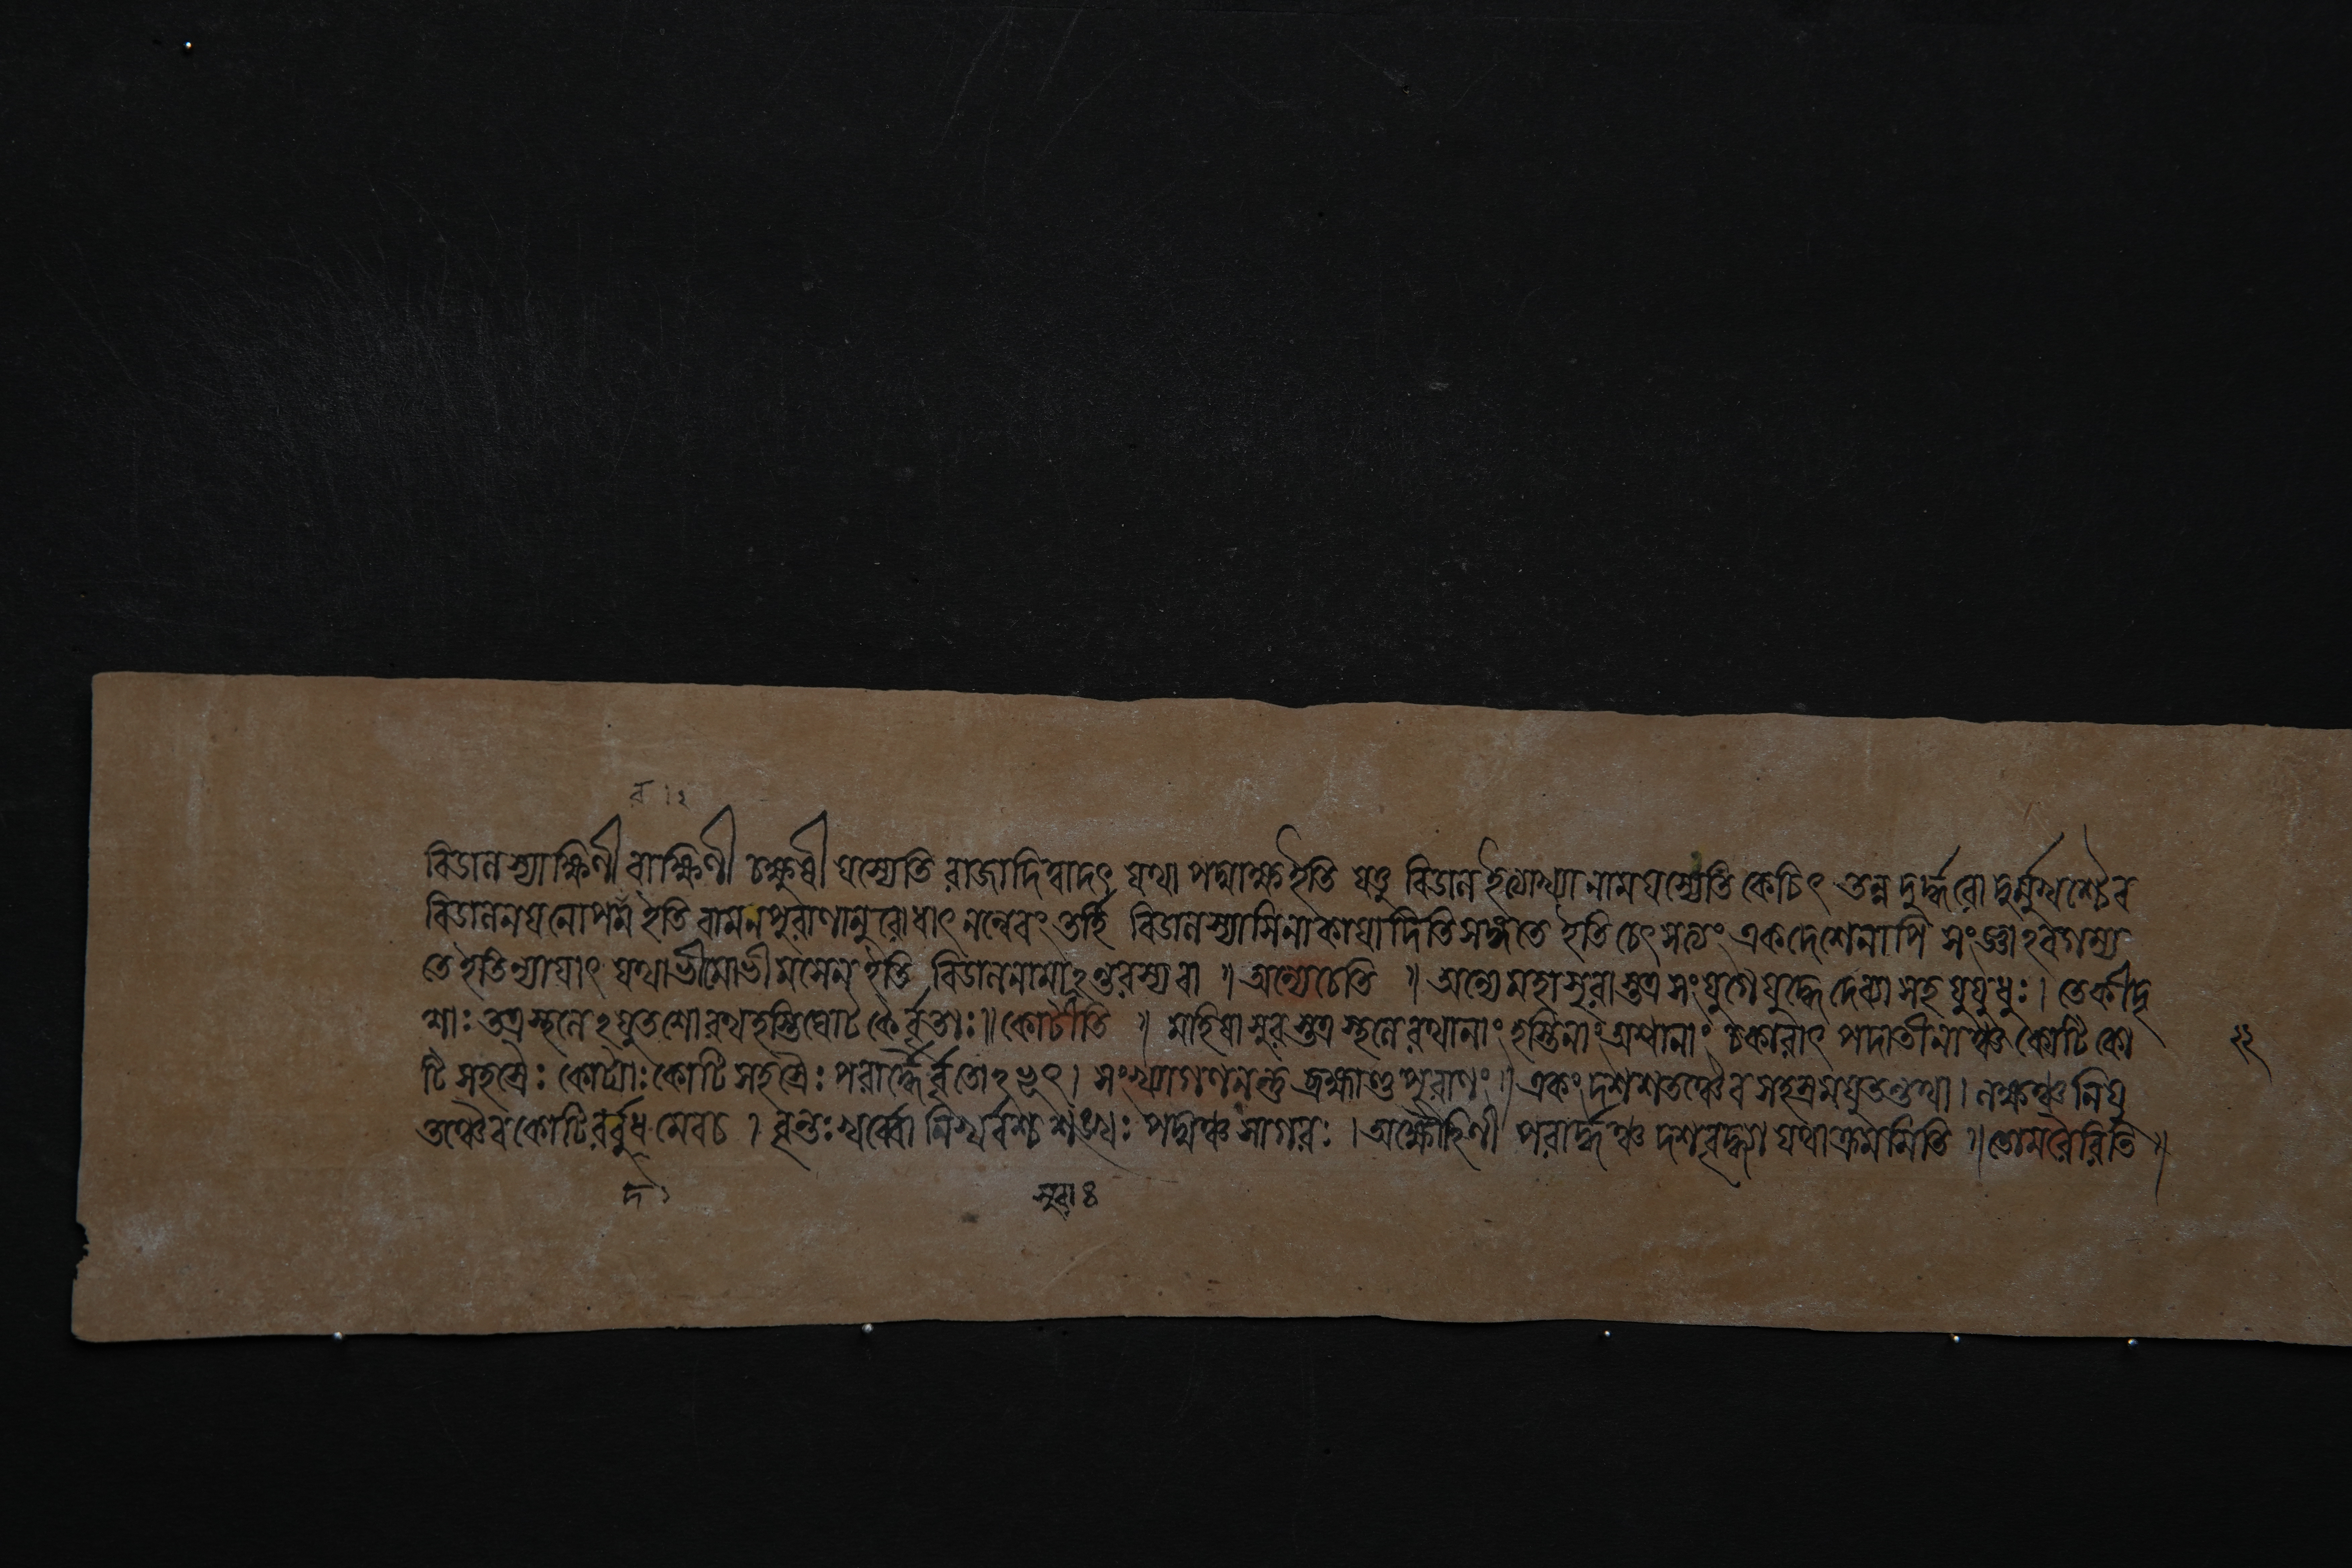 ব ।২
বিডালস্যাক্ষিণী বাক্ষিণী চক্ষুষী যস্যেতি রাজাদিত্বাদৎ যথা পদ্মাক্ষ ইতি যত্তু বিডাল ইত্যাখ্যা নাম যস্যেতি কেচিৎ তন্ন দুর্দ্ধরো দুর্ম্মুখশ্চৈব
বিডালনয়নোপম ইতি বামনপুরাণানুরোধাৎ নন্বেবং তর্হি বিডালস্যাসিনা কাযাদিতি সঙ্গতে ইতি চেৎ সত্যং একদেশেনাপি সংজ্ঞাঽবগম্য
তে ইতি ন্যাযাৎ যথা ভীমো ভীমসেন ইতি বিডালনামাঽসুরস্য বা ॥ অন্যে চেতি ॥ অন্যে মহাসুরাস্তত্র সংযুগে যুদ্ধে দেব্যা সহ যুযুধুঃ । তে কীদৃ
শাঃ তত্র স্থলেঽযুতশো রথহস্তিঘোটকৈর্বৃতাঃ ॥ কোটীতি ॥ মাহিষাসুরস্তত্র স্থলে রথানাং হস্তিনাং অশ্বানাং চকারাৎ পদাতীনাঞ্চ কোটিকো
টিসহস্রৈঃ কোট্যাঃ কোটিসহস্রৈঃ পরার্দ্ধৈর্বৃতোঽভূৎ । সংখ্যাগণনন্তু ব্রহ্মাণ্ডপুরাণং ॥ একং দশ শতঞ্চৈব সহস্রমযুতন্তথা । লক্ষঞ্চ নিযু
তঞ্চৈব কোটিরর্বুধমেবচ । বৃন্দঃ খর্ব্বো নিখর্বশ্চ শঙ্খঃ পদ্মঞ্চ সাগরঃ । অক্ষৌহিণী পরার্দ্ধঞ্চ দশবৃদ্ধ্যা যথাক্রমমিতি ॥ তোমরৈরিতি ॥
২২
র্দ ১
সুরা ৪